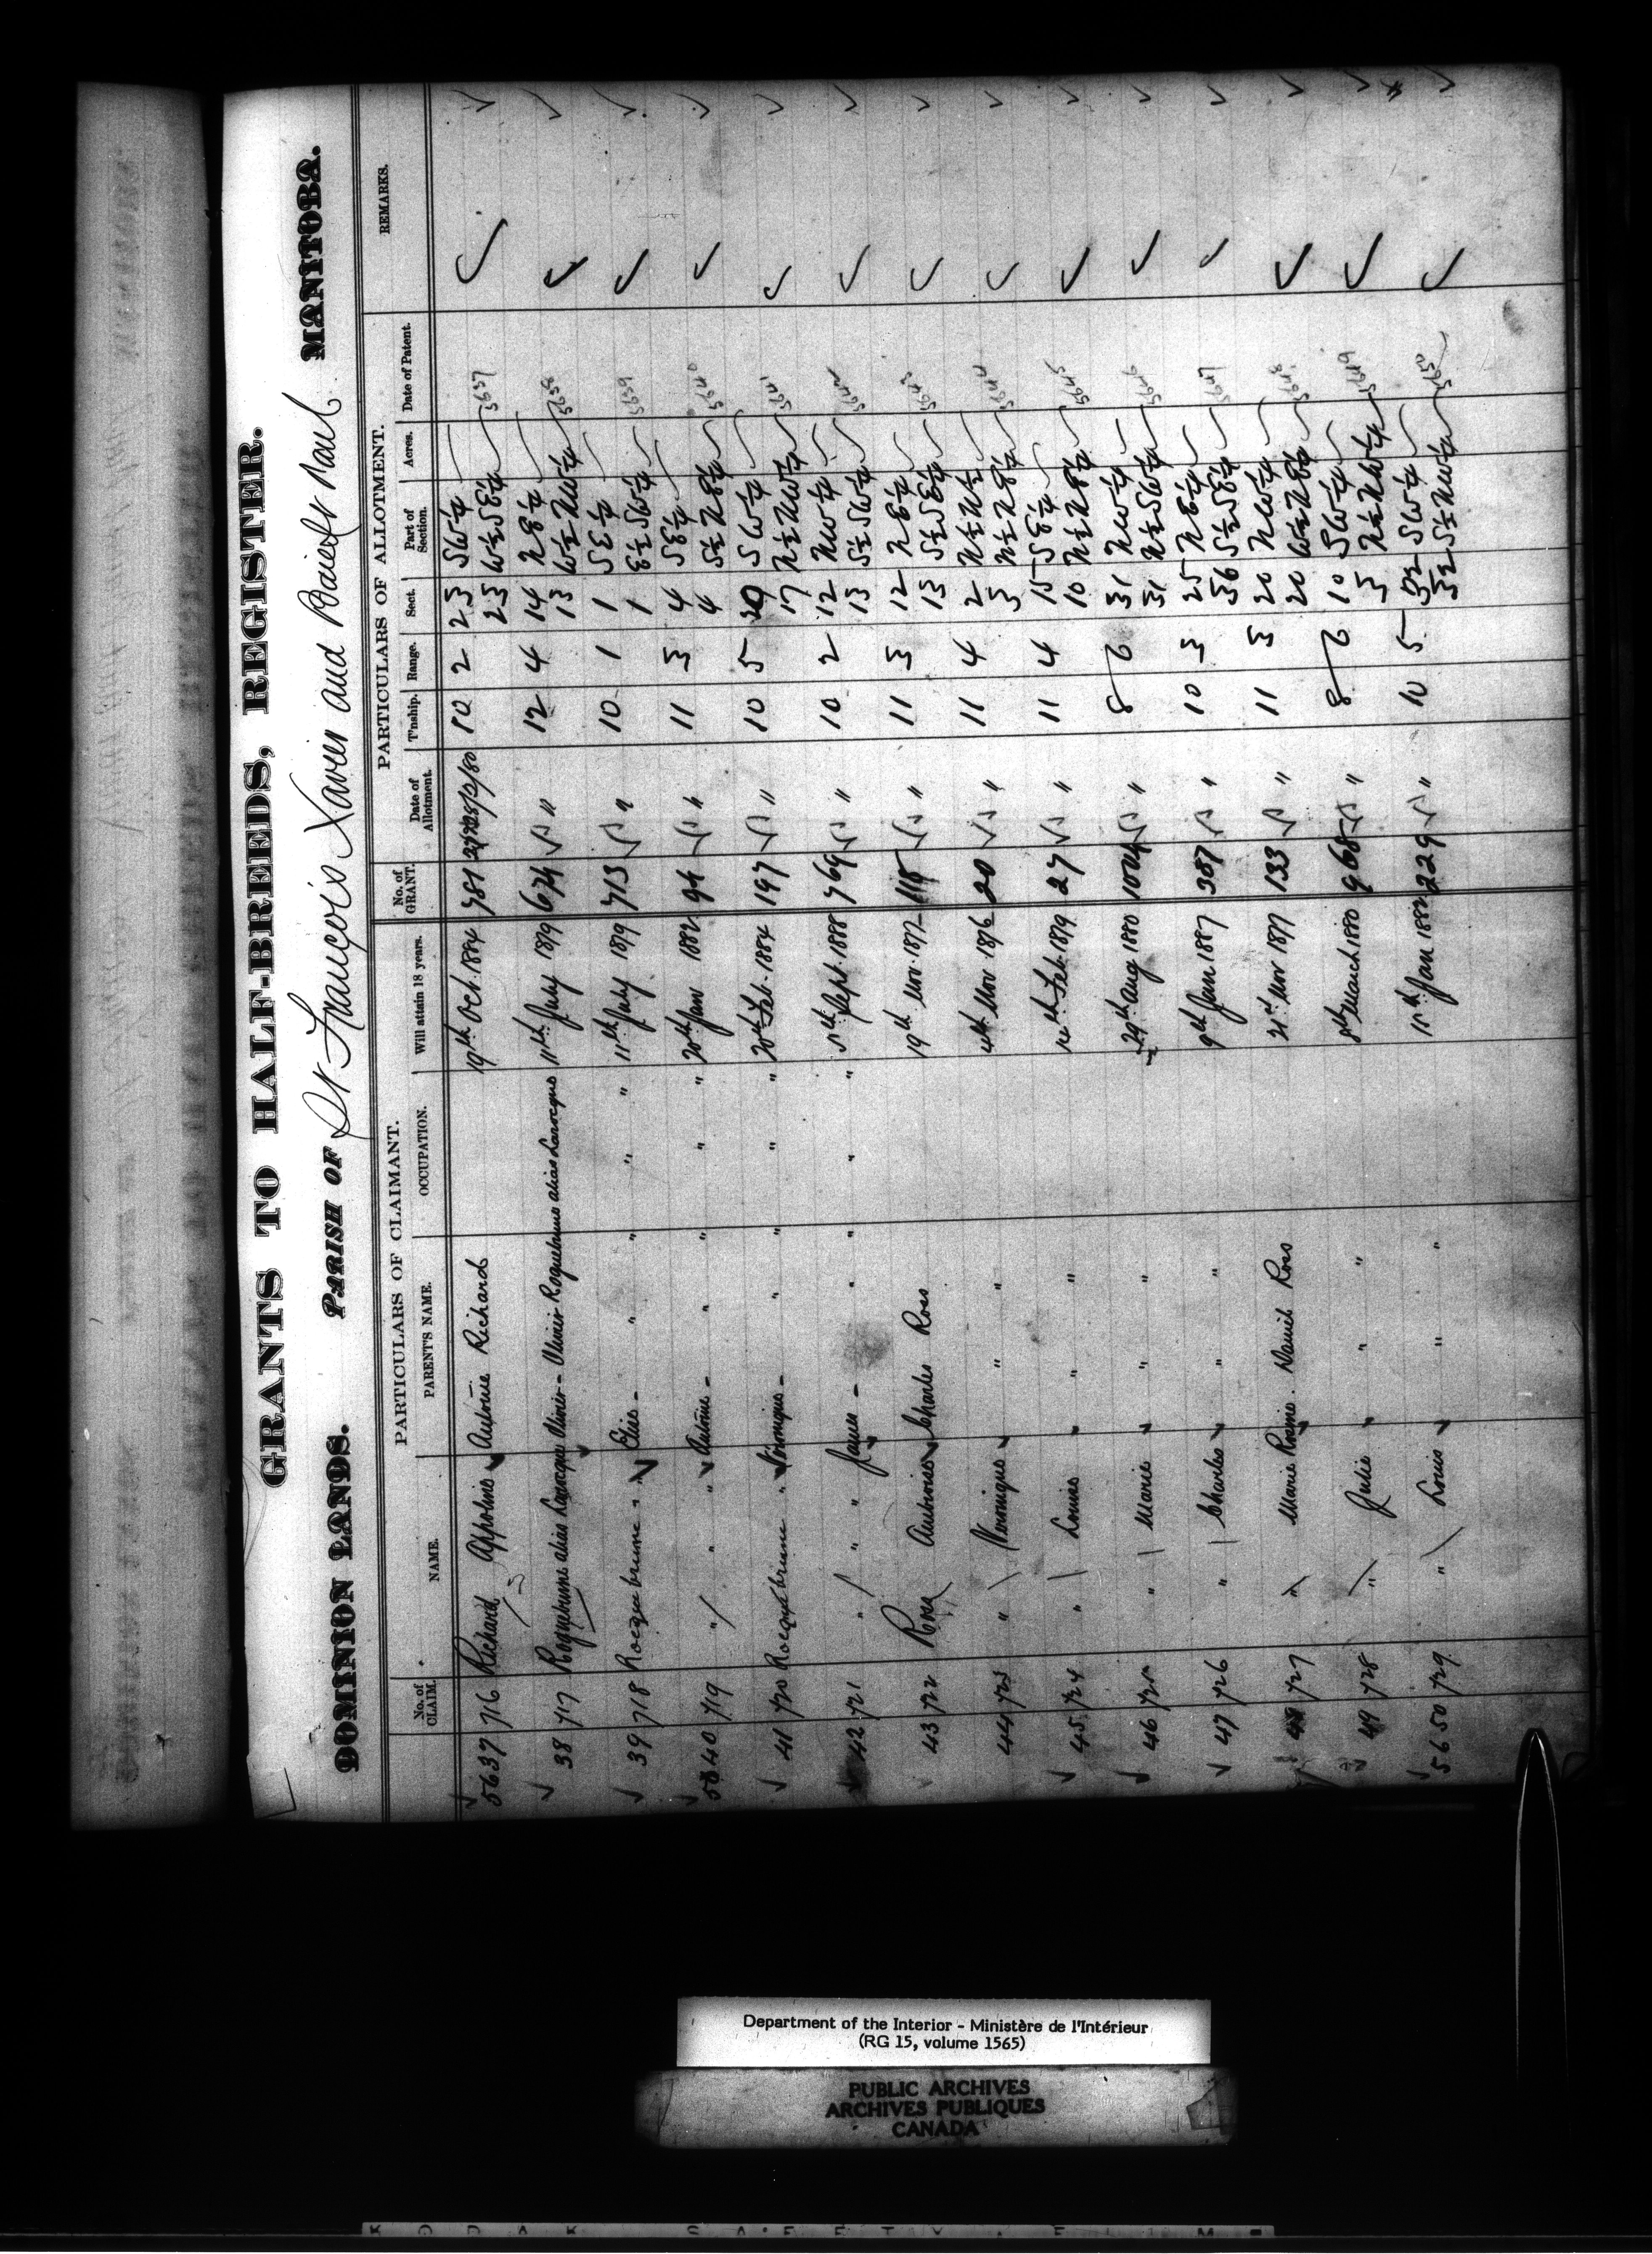 GRANTS TO HALF-BREEDS, REGISTER.
DOMINION LANDS. PARISH OF St François Xavier and Baie St Paul MANITOBA.
PARTICULARS OF CLAIMANT. PARTICULARS OF ALLOTMENT.
No. of CLAIM. NAME. PARENT'S NAME. OCCUPATION. Will attain 18 years. No. of GRANT. Date of Allotment. T'nship. Range. Sect. Part of Section. Acres. Date of Patent. REMARKS.
5637 716 Richard Appoline Antoine Richard 19th Oct. 1884 781 10 2 23 SW¼ 5637
23 W½SE¼
38 717 Roquebrune alias Larocque Olivier - Olivier Roquebrune alias Larocque 11th July 1879 674 " 12 4 14 NE¼ 5638
13 W½NW¼
39 718 Rocquebrune " Elise - " " " " 11th July 1879 713 " 10 1 1 SE¼ 5639
1 E½SW¼
5640 719 " " " Antoine - " " " " 20th Jan 1882 94 " 11 3 4 SE¼ 5640
4 S½NE¼
41 720 Rocquebrune " Véronique - " " " " 20th Feb. 1884 197 " 10 5 20 SW¼ 5641
17 N½NW¼
42 721 " " " James - " " " " 5th Sept. 1888 769 " 10 2 12 NW¼ 5642
13 S½SW¼
43 722 Ross Ambroise Charles Ross 19th Nov. 1877 115 " 11 3 12 NE¼ 5643
13 S½SE¼
44 723 " Veronique " " 4th Nov 1876 20 " 11 4 2 N½N½ 5644
3 N½NE¼
45 724 " Louise " " 14th Feb. 1879 27 " 11 4 15 SE¼ 5645
10 N½NE¼
46 725 " Marie " " 29th Aug 1880 1004 " 8 6 31 NW¼ 5646
31 N½SW¼
47 726 " Charles " " 9th Jan 1887 387 " 10 3 25 NE¼ 5647
36 S½SE¼
48 727 " Marie Rosine. Daniel Ross 21st Nov 1877 133 " 11 3 20 NW¼ 5648
20 W½NE¼
49 728 " Julie " " 8th March 1880 968 " 8 6 10 SW¼ 5649
3 N½NW¼
5650 729 " Louis " " 11th Jan 1882 229 " 10 5 32 SW¼ 5650
32 S½NW¼
Department of the Interior - Ministère de l'Intérieur
(RG 15, volume 1565)
PUBLIC ARCHIVES
ARCHIVES PUBLIQUES
CANADA
KODAK SAFETY FILM